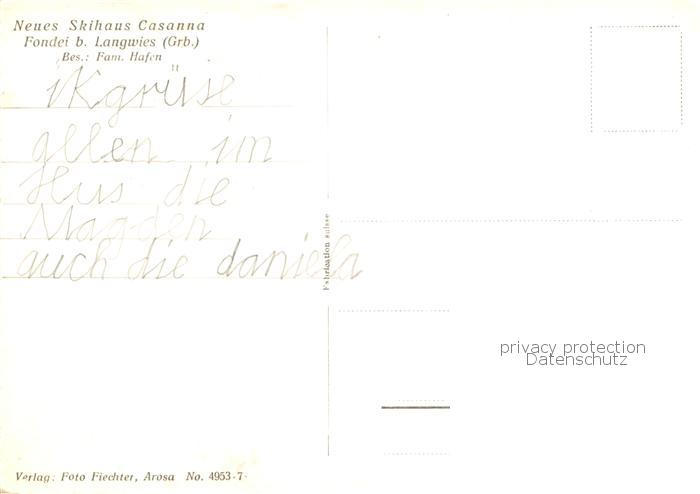 Neues Skihaus Casanna
Fondei b. Langwies (Grb.)
Bes.: Fam. Hafen
ikgrüse
allen im
Hus die
Magden
auch die daniela
Fabrication suisse
privacy protection
Datenschutz
Verlag: Foto Fiechter, Arosa No. 4953-7